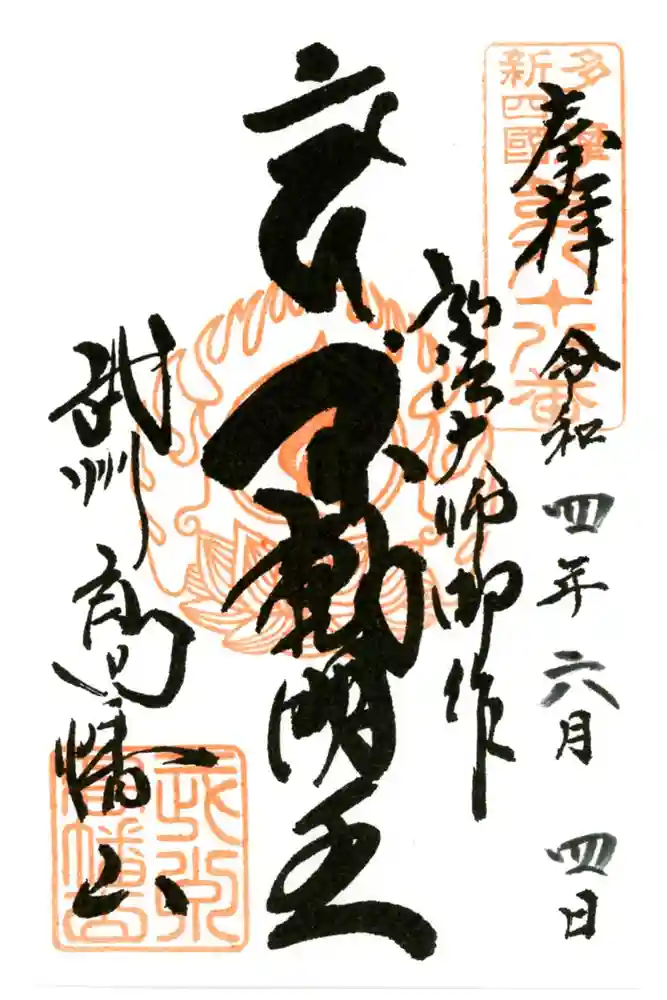 奉拝 令和四年六月四日
弘法大師御作
不動明王
武州 高幡山
多摩
新四國
第八十八番
武州
高幡山